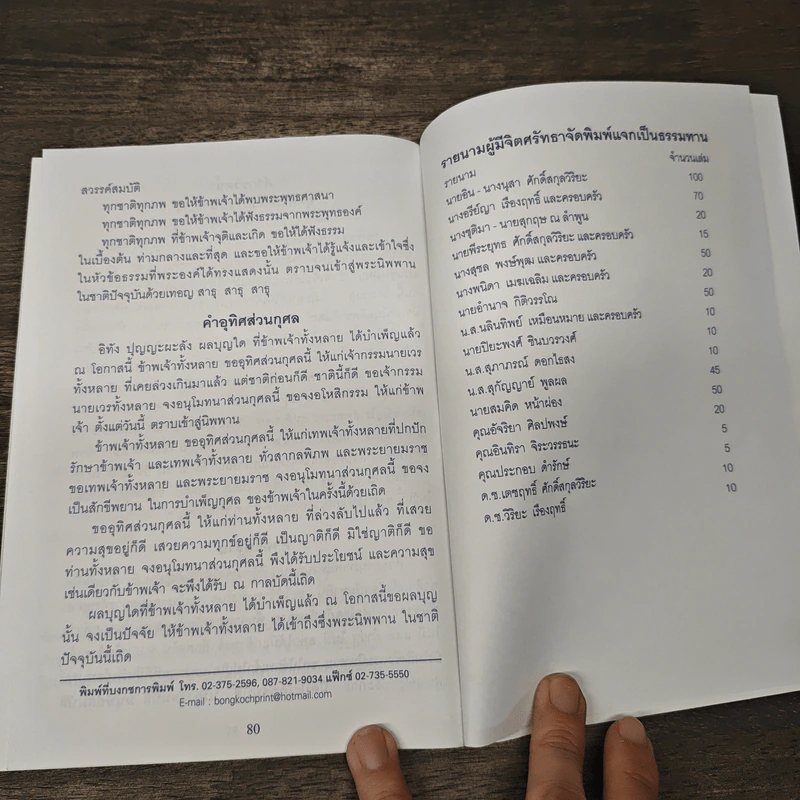 สวรรค์สมบัติ
ทุกชาติทุกภพ ขอให้ข้าพเจ้าได้พบพระพุทธศาสนา
ทุกชาติทุกภพ ขอให้ข้าพเจ้าได้ฟังธรรมจากพระพุทธองค์
ทุกชาติทุกภพ ที่ข้าพเจ้าจุติและเกิด ขอให้ได้ฟังธรรม
ในเบื้องต้น ท่ามกลางและที่สุด และขอให้ข้าพเจ้าได้รู้แจ้งและเข้าใจซึ่ง
ในหัวข้อธรรมที่พระองค์ได้ทรงแสดงนั้น ตราบจนเข้าสู่พระนิพพาน
ในชาติปัจจุบันด้วยเทอญ สาธุ สาธุ สาธุ
คำอุทิศส่วนกุศล
อิทัง ปุญญะผะลัง ผลบุญใด ที่ข้าพเจ้าทั้งหลาย ได้บำเพ็ญแล้ว
ณ โอกาสนี้ ข้าพเจ้าทั้งหลาย ขออุทิศส่วนกุศลนี้ ให้แก่เจ้ากรรมนายเวร
ทั้งหลาย ที่เคยล่วงเกินมาแล้ว แต่ชาติก่อนก็ดี ชาตินี้ก็ดี ขอเจ้ากรรม
นายเวรทั้งหลาย จงอนุโมทนาส่วนกุศลนี้ ขอจงอโหสิกรรม ให้แก่ข้าพ
เจ้า ตั้งแต่วันนี้ ตราบเข้าสู่นิพพาน
ข้าพเจ้าทั้งหลาย ขออุทิศส่วนกุศลนี้ ให้แก่เทพเจ้าทั้งหลายที่ปกปัก
รักษาข้าพเจ้า และเทพเจ้าทั้งหลาย ทั่วสากลพิภพ และพระยายมราช
ขอเทพเจ้าทั้งหลาย และพระยายมราช จงอนุโมทนาส่วนกุศลนี้ ขอจง
เป็นสักขีพยาน ในการบำเพ็ญกุศล ของข้าพเจ้าในครั้งนี้ด้วยเถิด
ขออุทิศส่วนกุศลนี้ ให้แก่ท่านทั้งหลาย ที่ล่วงลับไปแล้ว ที่เสวย
ความสุขอยู่ก็ดี เสวยความทุกข์อยู่ก็ดี เป็นญาติก็ดี มิใช่ญาติก็ดี ขอ
ท่านทั้งหลาย จงอนุโมทนาส่วนกุศลนี้ พึงได้รับประโยชน์ และความสุข
เช่นเดียวกับข้าพเจ้า จะพึงได้รับ ณ กาลบัดนี้เถิด
ผลบุญใดที่ข้าพเจ้าทั้งหลาย ได้บำเพ็ญแล้ว ณ โอกาสนี้ขอผลบุญ
นั้น จงเป็นปัจจัย ให้ข้าพเจ้าทั้งหลาย ได้เข้าถึงซึ่งพระนิพพาน ในชาติ
ปัจจุบันนี้เถิด
พิมพ์ที่บงกชการพิมพ์ โทร. 02-375-2596, 087-821-9034 แฟ็กซ์ 02-735-5550
E-mail : bongkochprint@hotmail.com
80
รายนามผู้มีจิตศรัทธาจัดพิมพ์แจกเป็นธรรมทาน
รายนาม จำนวนเล่ม
นายอิน - นางนุสา ศักดิ์สกุลวิริยะ 100
นางอรีย์ญา เรืองฤทธิ์ และครอบครัว 70
นางชุติมา - นายสุกฤษ ณ ลำพูน 20
นายพีระยุทธ ศักดิ์สกุลวิริยะ และครอบครัว 15
นางสุชล พงษ์พุฒ และครอบครัว 50
นางพนิดา เมฆเฉลิม และครอบครัว 20
นายอำนาจ กิติวรรโณ 50
น.ส.นลินทิพย์ เหมือนหมาย และครอบครัว 10
นายปิยะพงศ์ ชินบวรวงศ์ 10
น.ส.สุภาภรณ์ ดอกไธสง 10
น.ส.สุกัญญาย์ พูลผล 45
นายสมคิด หน้าผ่อง 50
คุณอัจริยา ศิลปพงษ์ 20
คุณอินทิรา จิระวรรธนะ 5
คุณประกอบ ดำรักษ์ 5
ด.ช.เตชฤทธิ์ ศักดิ์สกุลวิริยะ 10
ด.ช.วิริยะ เรืองฤทธิ์ 10